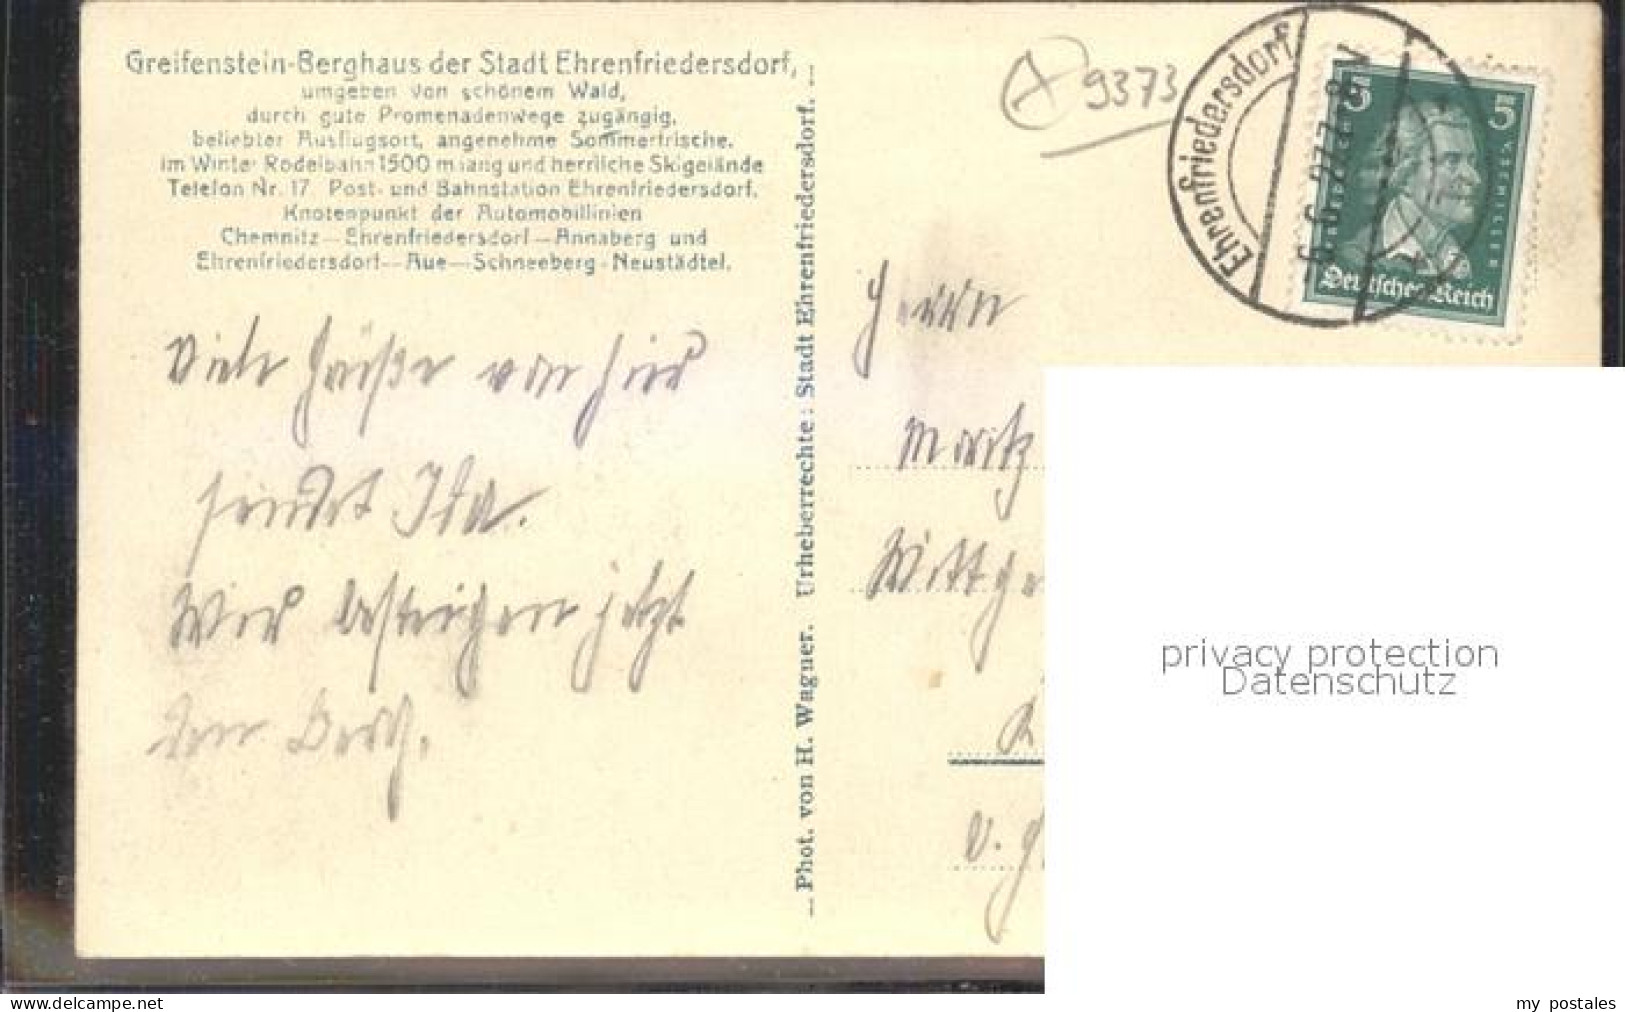 Greifenstein-Berghaus der Stadt Ehrenfriedersdorf,
umgeben von schönem Wald,
durch gute Promenadenwege zugängig,
beliebter Ausflugsort, angenehme Sommerfrische.
im Winter Rodelbahn 1500 m lang und herrliche Skigelände
Telefon Nr. 17 Post- und Bahnstation Ehrenfriedersdorf.
Knotenpunkt der Automobillinien
Chemnitz—Ehrenfriedersdorf—Annaberg und
Ehrenfriedersdorf—Aue—Schneeberg-Neustädtel.
Viele Grüße von hier
sendet Ida.
Wir besteigen jetzt
den Berg.
— Phot. von H. Wagner. Urheberrechte: Stadt Ehrenfriedersdorf. —
A 9373
Ehrenfriedersdorf
6.9.27.8-V
5 5
Deutsches Reich
Herrn
Moritz
Wittge
K
v. G
privacy protection
Datenschutz
www.delcampe.net
my_postales